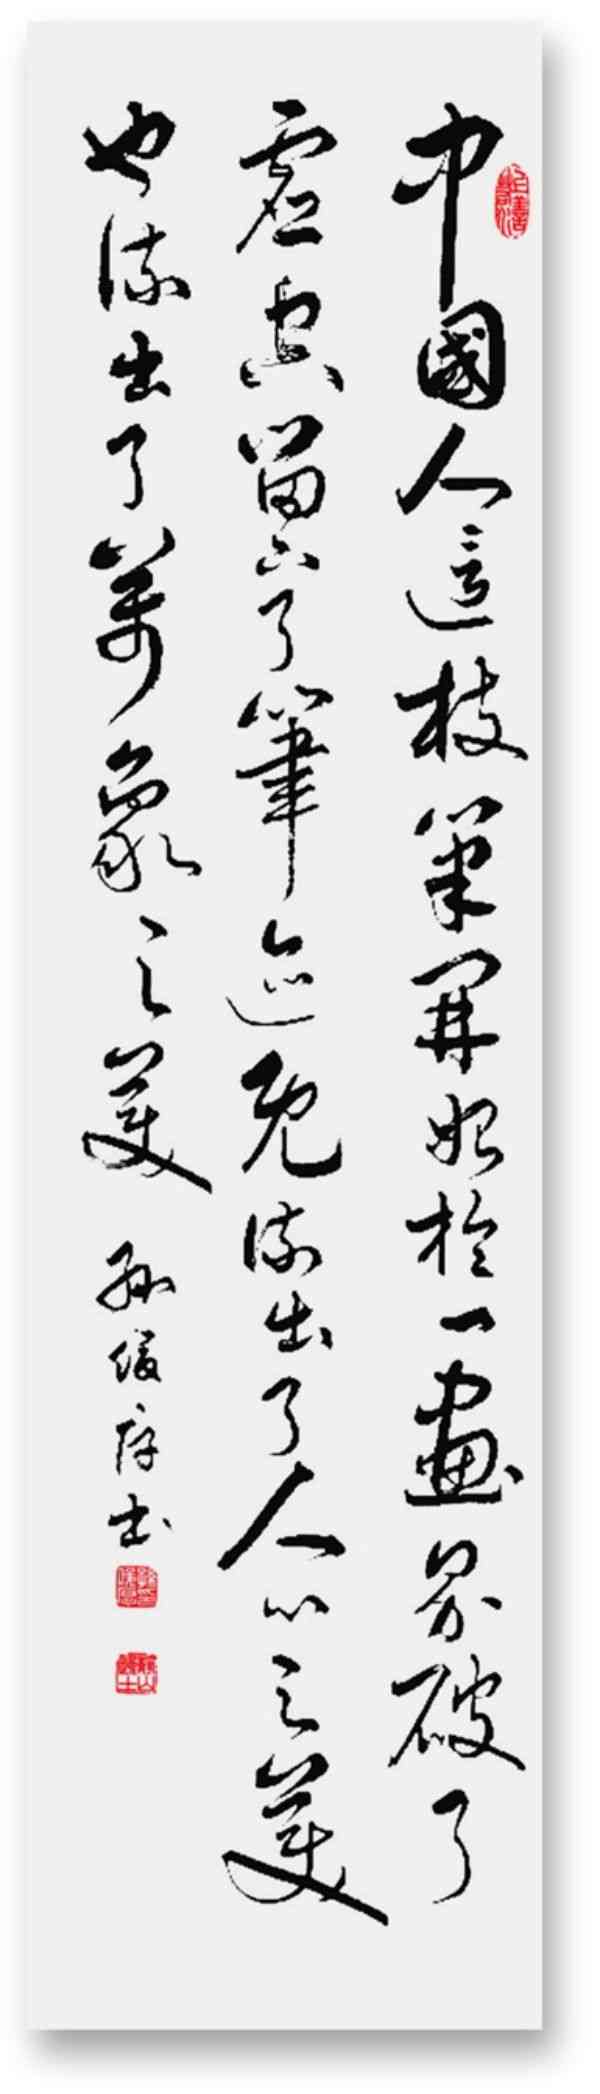 中國人這枝筆開始於一畫界破了
虛空留下了筆迹既流出了人心之美
也流出了萬象之美
孫俊存書